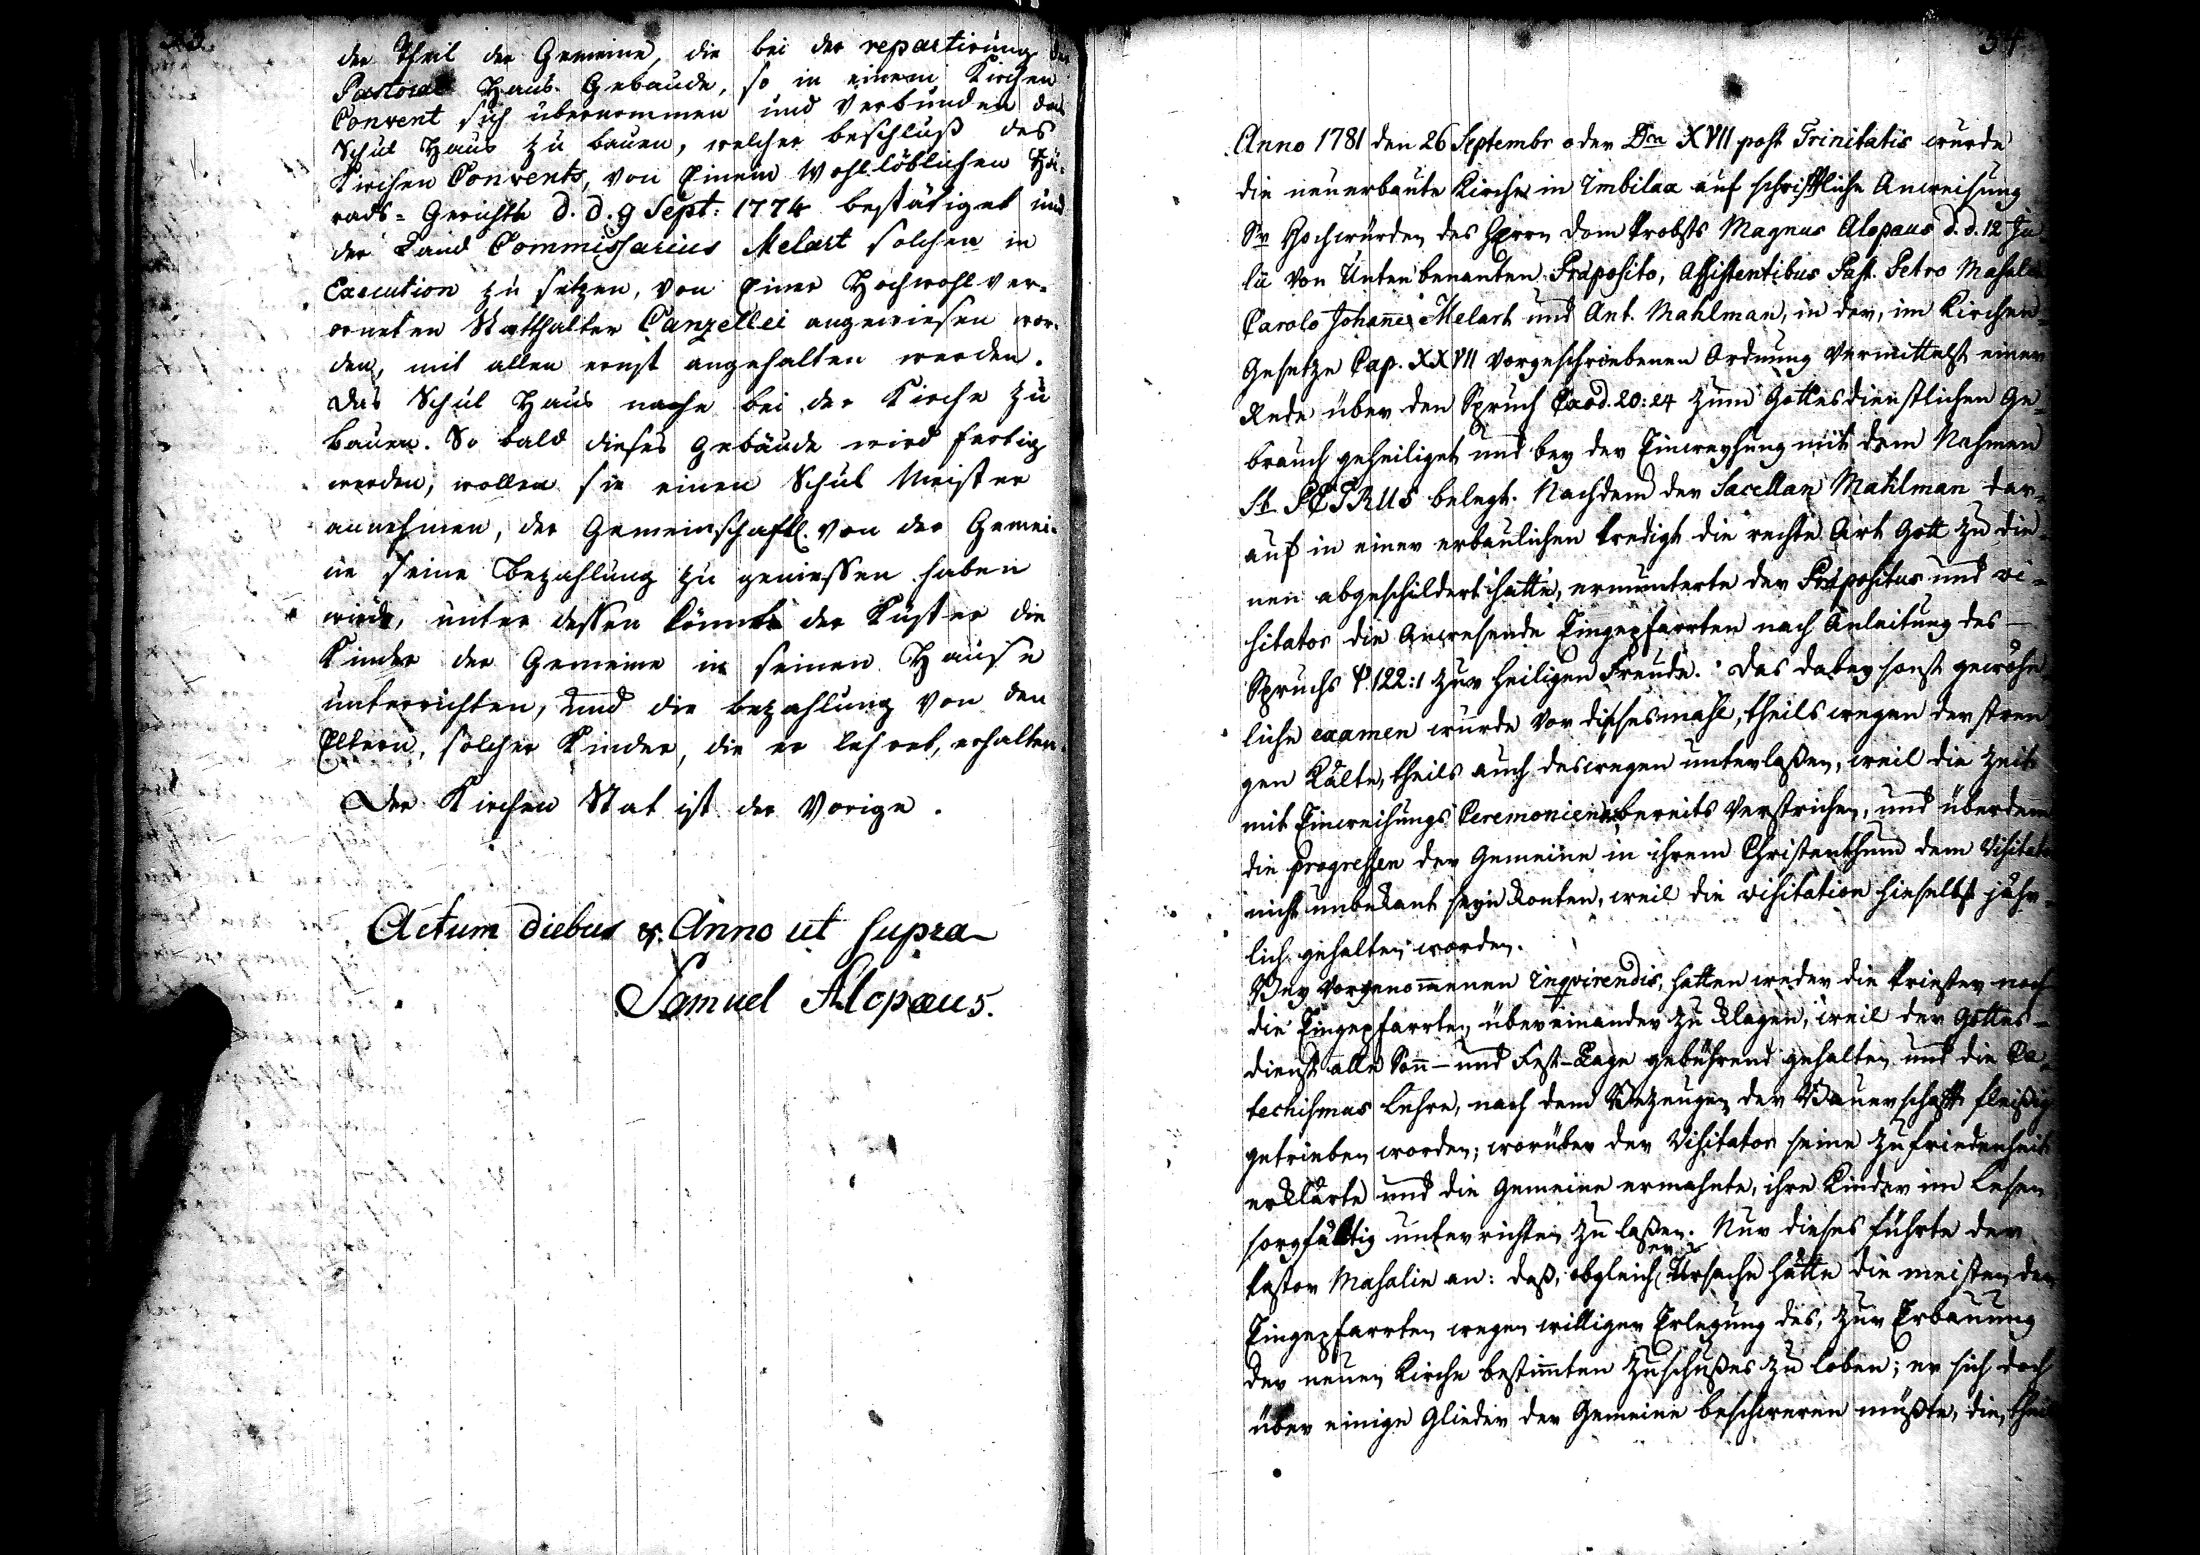 der Theil der Gemeine, die bei der repartirung der
Pastorat Haus Gebäude, so in einem Kirchen
Convent sich übernommen und verbunden das
Schul Haus zu bauen, welcher beschluß des
Kirchen Convents, von Einem Wohllöblichen Hä-
rads-Gerichte d. d. 9 Sept: 1774 bestätiget und
der Land Commissarius Melart solchen in
Execution zu setzen, von Einer Hochwohlver-
orneten Statthalter Canzellei angewiesen wor-
den, mit allen ernst angehalten werden.
Das Schul Haus nahe bei der Kirche zu
bauen. So bald dieses Gebäude wird fertig
werden, wollen sie einen Schul Meister
annehmen, der Gemeinschaftl. von der Gemei-
ne seine Bezahlung zu geniessen haben
wird, unter dessen könnte der Küster die
Kinder der Gemeine in seinen Hause
unterrichten, und die bezahlung von den
Eltern, solcher Kinder, die er lehret, erhalten.
Der Kirchen Stat ist der Vorige.
Actum diebus &. Anno ut supra
Samuel Alopæus.
54
Anno 1781 den 26 Septembr oder Dca XVII post Trinitatis wurde
die neuerbaute Kirche in Imbilax auf schriftliche Anweisung
Sr Hochwürden des Herrn Dom Probsts Magnus Alopæus d. d. 12 Ju-
lii von Unten benanten Præposito, Assistentibus Past. Petro Mahalin
Carolo Johanne Melart und Ant. Mahlman, in der, im Kirchen-
Gesetze Cap. XXVII vorgeschriebenen Ordnung vermittelst einer
Rede über den Spruch Exod. 20:24 zum Gottesdienstlichen Ge-
brauch geheiliget und bey der Einweyhung mit dem Nahmen
St PETRUS belegt. Nachdem der Sacellan Mahlman dar-
auf in einer erbaulichen Predigt die rechte Art Gott zu die-
nen abgeschildert hatte, ermunterte der Præpositus und vi-
sitator die Anwesende Eingepfarrten nach Anleitung des
Spruchs Ps. 122:1 zur heiligen Freude. Das dabey sonst gewöhn
liche examen wurde vor dissesmahl, theils wegen der stren
gen Kälte, theils auch deswegen unterlaßen, weil die Zeit
mit Einweihungs Ceremonien bereits verstrichen, und überdem
die progressen der Gemeine in ihrem Christenthum dem Visitator
nicht unbekant seyn konten, weil die visitation hieselbst jähr-
lich gehalten worden.
Bey vorgenommenen Inqvirendis, hatten weder die Priester noch
die Eingepfarrten übereinander zu klagen, weil der Gottes-
dienst alle Sonn- und Fest-Tage gebührend gehalten und die Ca-
techismus Lehre, nach dem Bezeugen der Bauerschafft fleißig
getrieben worden; worüber der Visitator seine Zufriedenheit
erklärte und die Gemeine ermahnte, ihre Kinder im Lesen
sorgfältig unterrichten zu laßen. Nur dieses führte der
Pastor Mahalin an: daß, obgleich er Ursache hätte die meisten der
Eingepfarrten wegen williger Erlegung des, zur Erbauung
der neuen Kirche bestimmten Zuschußes zu loben; er sich doch
über einige Glieder der Gemeine beschweren müßte, die, theils